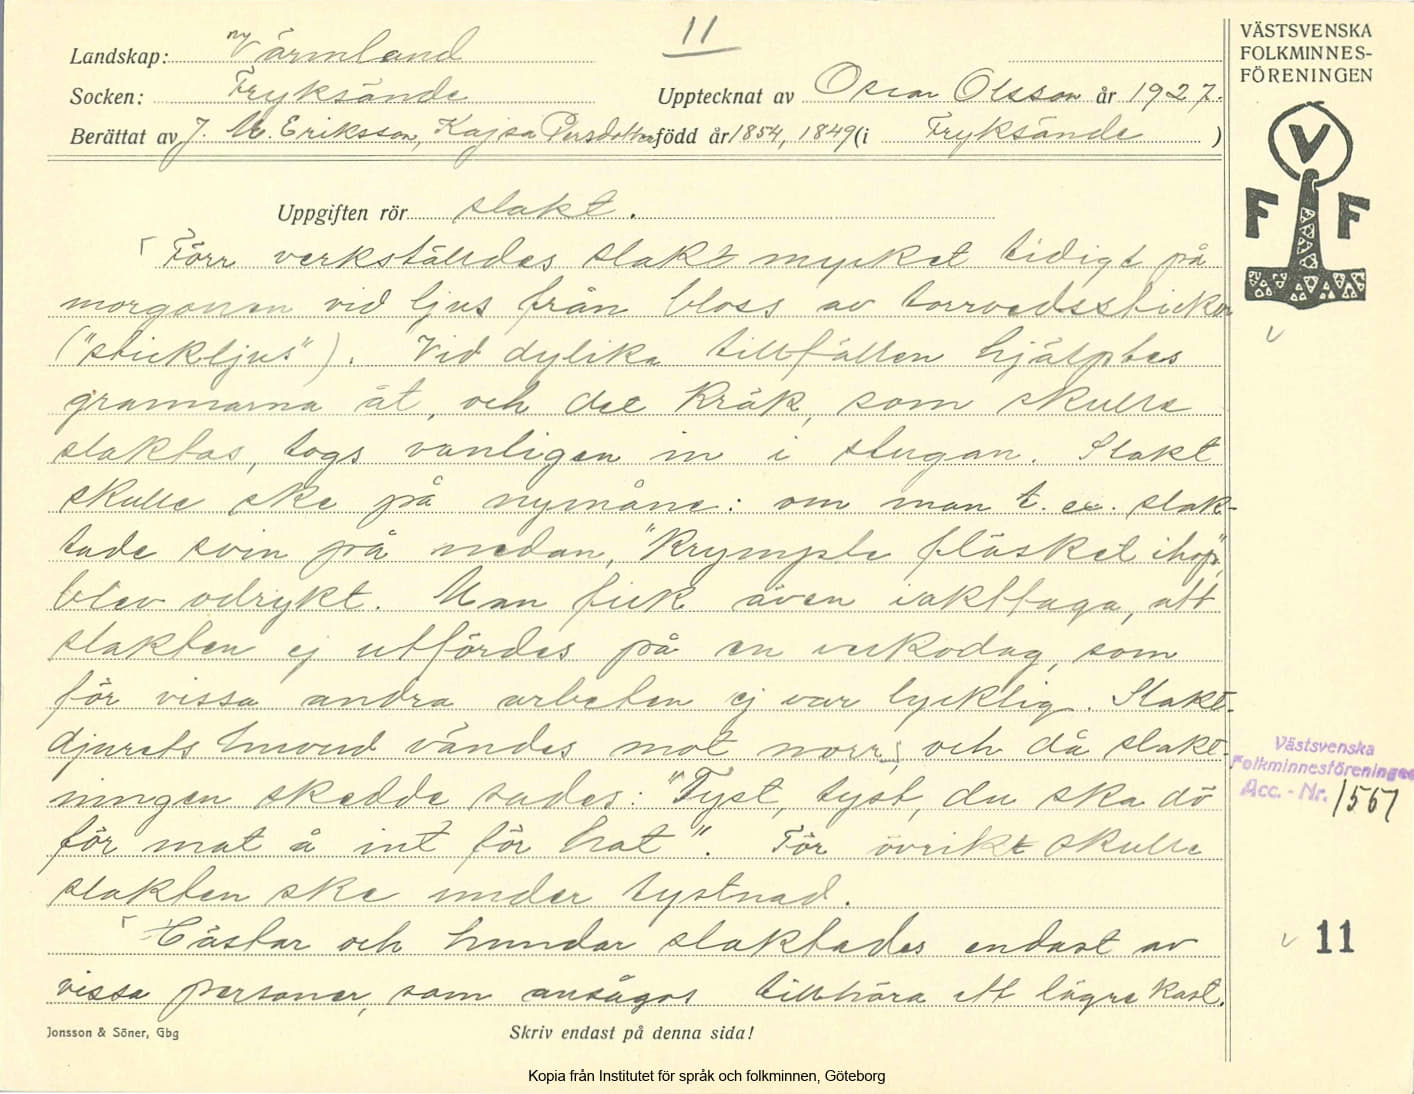 11
VÄSTSVENSKA
FOLKMINNES-
FÖRENINGEN
Landskap: Värmland
Socken: Fryksände
Upptecknat av Oscar Olsson år 1927.
Berättat av J. M. Eriksson, Kajsa Persdotter född år 1854, 1849 (i Fryksände )
V
F F
Uppgiften rör slakt.
Förr verkställdes slakt mycket tidigt på
morgonen vid ljus från bloss av torrvedsstickor
("stickljus"). Vid dylika tillfällen hjälptes
grannarna åt, och det kräk, som skulle
slaktas, togs vanligen in i stugan. Slakt
skulle ske på nymåne: om man t. ex. slak-
tade svin på nedan, "krympte fläsket ihop",
blev odrykt. Man fick även iakttaga, att
slakten ej utfördes på en veckodag, som
för vissa andra arbeten ej var lycklig. Slakt-
djurets huvud vändes mot norr, och då slakt-
ningen skedde sades: "Tyst, tyst, du ska dö
för mat å int för hat". För övrikt skulle
slakten ske under tystnad.
Hästar och hundar slaktades endast av
vissa personer, som ansågos tillhöra ett lägre kast.
Västsvenska
Folkminnesföreningen
Acc. - Nr. 1551
11
Jonsson & Söner, Gbg
Skriv endast på denna sida!
Kopia från Institutet för språk och folkminnen, Göteborg